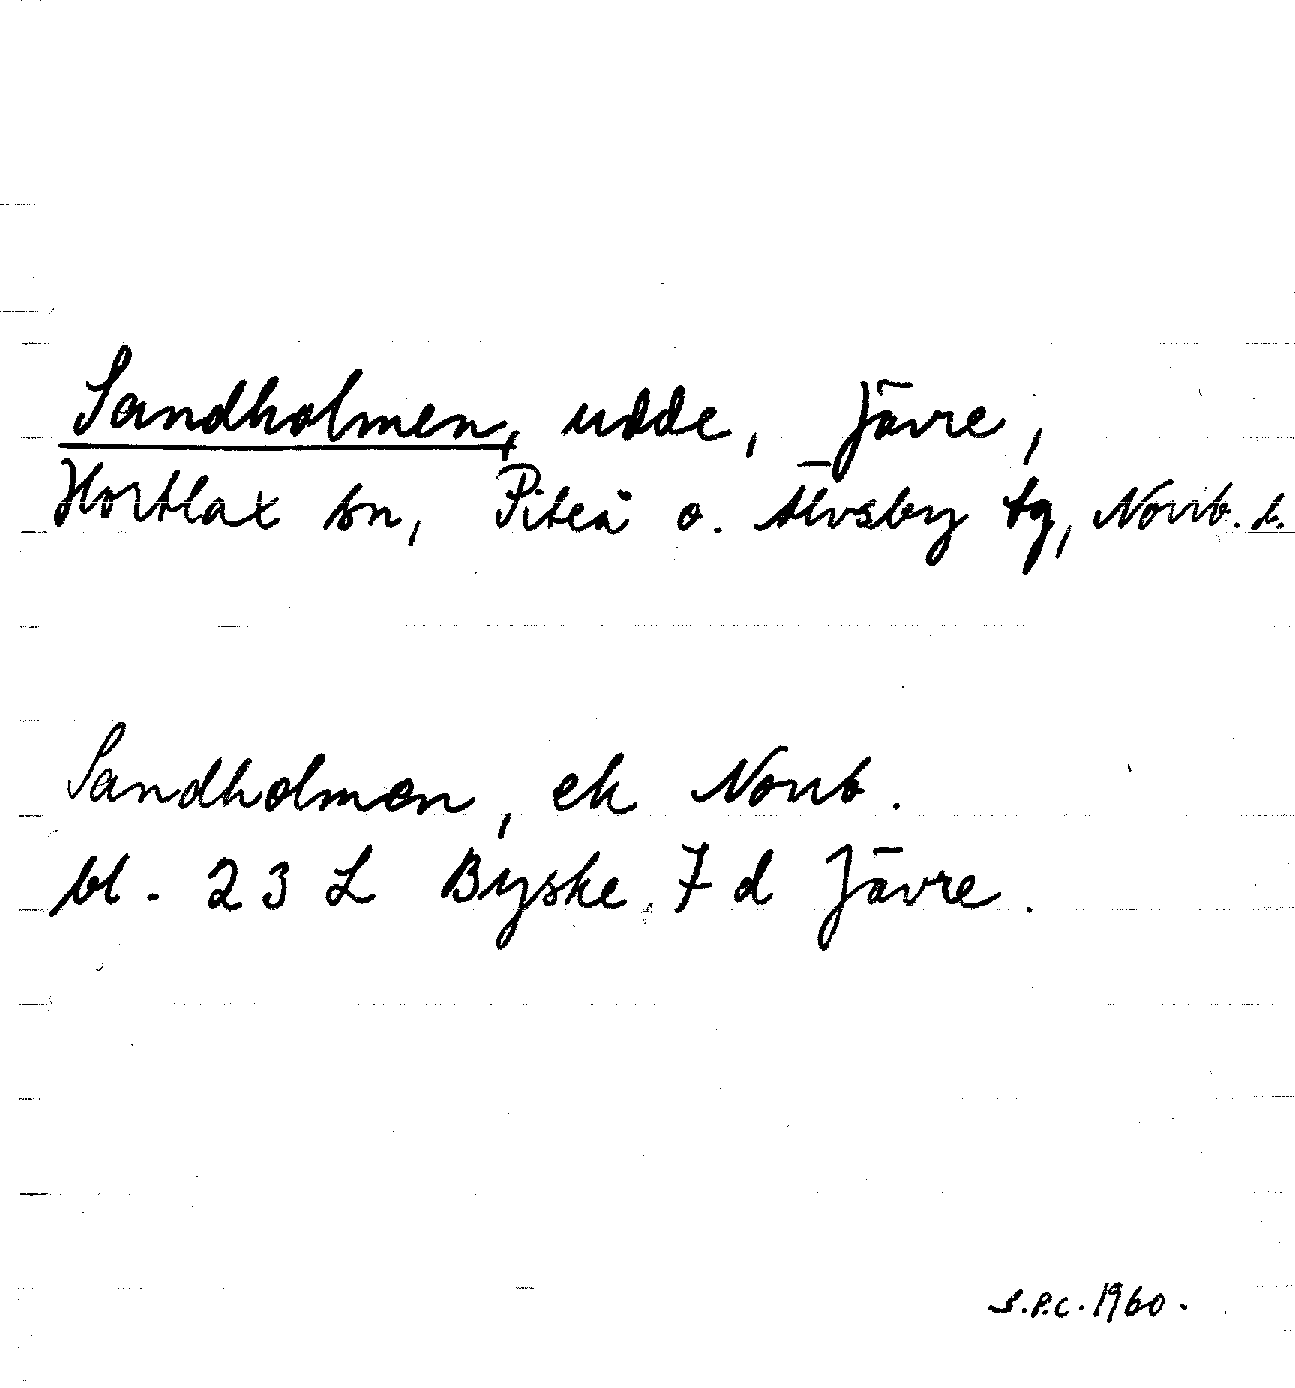 Sandholmen, udde, Jävre,
Hortlax sn, Piteå o. Älvsby tg, Norrb. l.
Sandholmen, ek Norrb.
bl. 23 L Byske, 7 d Jävre.
S.P.C. 1960.